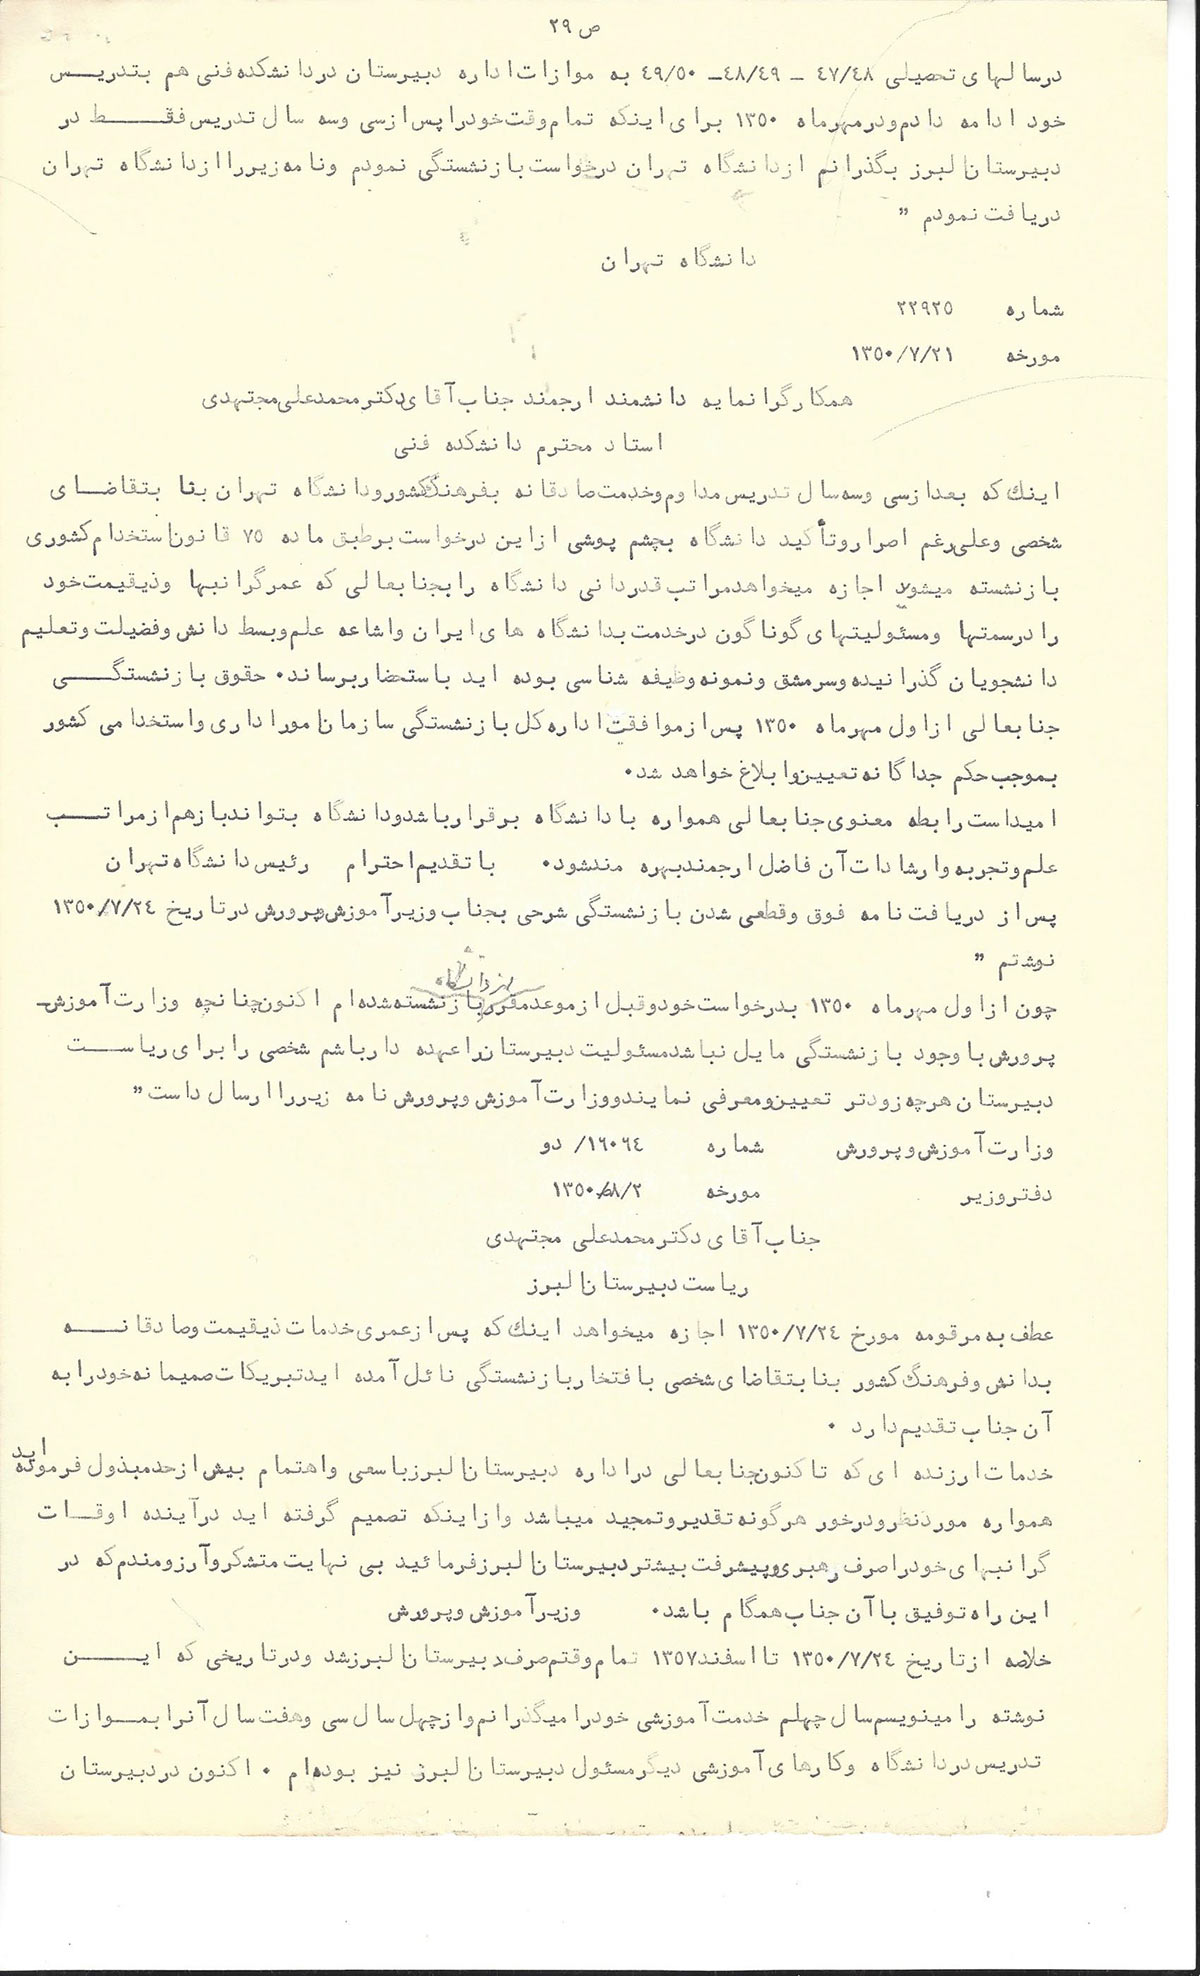 ص ۲۹
درسالهای تحصیلی ۴۷/۴۸ – ۴۸/۴۹– ۴۹/۵۰ به موازات اداره دبیرستان دردانشکده فنی هم بتدریس
خود ادامه دادم ودرمهرماه ۱۳۵۰ برای اینکه تمام وقت خودراپس ازسی وسه سال تدریس فقط در
دبیرستان البرز بگذرانم ازدانشگاه تهران درخواست بازنشستگی نمودم ونامه زیررا ازدانشگاه تهران
دریافت نمودم "
دانشگاه تهران
شماره ۲۲۹۲۵
مورخه ۱۳۵۰/۷/۲۱
همکارگرانمایه دانشمند ارجمند جناب آقای دکترمحمدعلی مجتهدی
استاد محترم دانشکده فنی
اینك که بعدازسی وسه سال تدریس مداوم وخدمت صادقانه بفرهنگ کشورودانشگاه تهران بنا بتقاضای
شخصی وعلی رغم اصراروتأکید دانشگاه بچشم پوشی ازاین درخواست برطبق ماده ۷۵ قانون استخدام کشوری
بازنشسته میشوید اجازه میخواهدمراتب قدردانی دانشگاه رابجنابعالی که عمرگرانبها وذیقیمت خود
رادرسمتها ومسئولیتهای گوناگون درخدمت بدانشگاه های ایران واشاعه علم وبسط دانش وفضیلت وتعلیم
دانشجویان گذرانیده وسرمشق ونمونه وظیفه شناسی بوده اید باستحضاربرساند۰ حقوق بازنشستگی
جنابعالی ازاول مهرماه ۱۳۵۰ پس ازموافقت اداره کل بازنشستگی سازمان اموراداری واستخدامی کشور
بموجب حکم جداگانه تعیین وابلاغ خواهد شد۰
امیداست رابطه معنوی جنابعالی همواره بادانشگاه برقرارباشدودانشگاه بتواندبازهم ازمراتب
علم وتجربه وارشادات آن فاضل ارجمندبهره مندشود۰ باتقدیم احترام رئیس دانشگاه تهران
پس از دریافت نامه فوق وقطعی شدن بازنشستگی شرحی بجناب وزیرآموزش وپرورش درتاریخ ۱۳۵۰/۷/۲۴
نوشتم "
از دانشگاه
چون ازاول مهرماه ۱۳۵۰ بدرخواست خودوقبل ازموعدمقرر بازنشسته شده ام اکنون چنانچه وزارت آموزش-
پرورش باوجود بازنشستگی مایل نباشدمسئولیت دبیرستان راعهده دارباشم شخصی رابرای ریاست
دبیرستان هرچه زودتر تعیین ومعرفی نمایندووزارت آموزش وپرورش نامه زیرراارسال داست"
وزارت آموزش وپرورش شماره ۱۶۰۶۴/ دو
دفتروزیر مورخه ۱۳۵۰/۸/۲
جناب آقای دکترمحمدعلی مجتهدی
ریاست دبیرستان البرز
عطف به مرقومه مورخ ۱۳۵۰/۷/۲۴ اجازه میخواهد اینك که پس ازعمری خدمات ذیقیمت وصادقانه
بدانش وفرهنگ کشور بنابتقاضای شخصی بافتخاربازنشستگی نائل آمده ایدتبریکات صمیمانه خودرابه
آن جناب تقدیم دارد ۰
خدمات ارزنده ای که تاکنون جنابعالی دراداره دبیرستان البرزباسعی واهتمام بیش ازحدمبذول فرموده اید
همواره موردنظرودرخور هرگونه تقدیروتمجید میباشد وازاینکه تصمیم گرفته اید درآینده اوقات
گرانبهای خودراصرف رهبری وپیشرفت بیشتردبیرستان البرزفرمائید بی نهایت متشکروآرزومندم که در
این راه توفیق باآن جناب همگام باشد۰ وزیرآموزش وپرورش
خلاصه ازتاریخ ۱۳۵۰/۷/۲۴ تااسفند۱۳۵۷ تمام وقتم صرف دبیرستان البرزشد ودرتاریخی که این
نوشته رامینویسم سال چهلم خدمت آموزشی خودرامیگذرانم وازچهل سال سی وهفت سال آنرابموازات
تدریس دردانشگاه وکارهای آموزشی دیگرمسئول دبیرستان البرز نیز بوده ام ۰ اکنون دردبیرستان